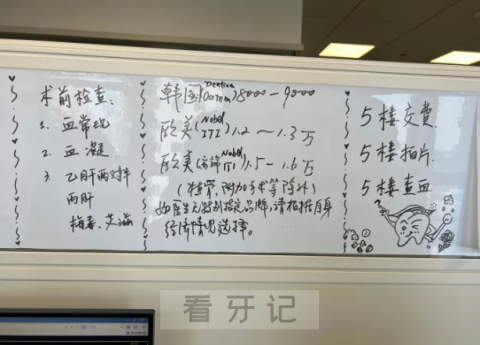 术前检查:
1. 血常规
2. 血凝
3. 乙肝两对半
丙肝
梅毒、艾滋
韩国(Dentium Osstem)8000-9000
欧美(Nobel ITI)1.2~1.3万
欧美(Nobel ITI)1.5-1.6万
(植骨、附加手术等除外)
如医生无特别指定品牌,请根据自身
经济情况选择。
5楼交费
5楼拍片
5楼查血
看牙记